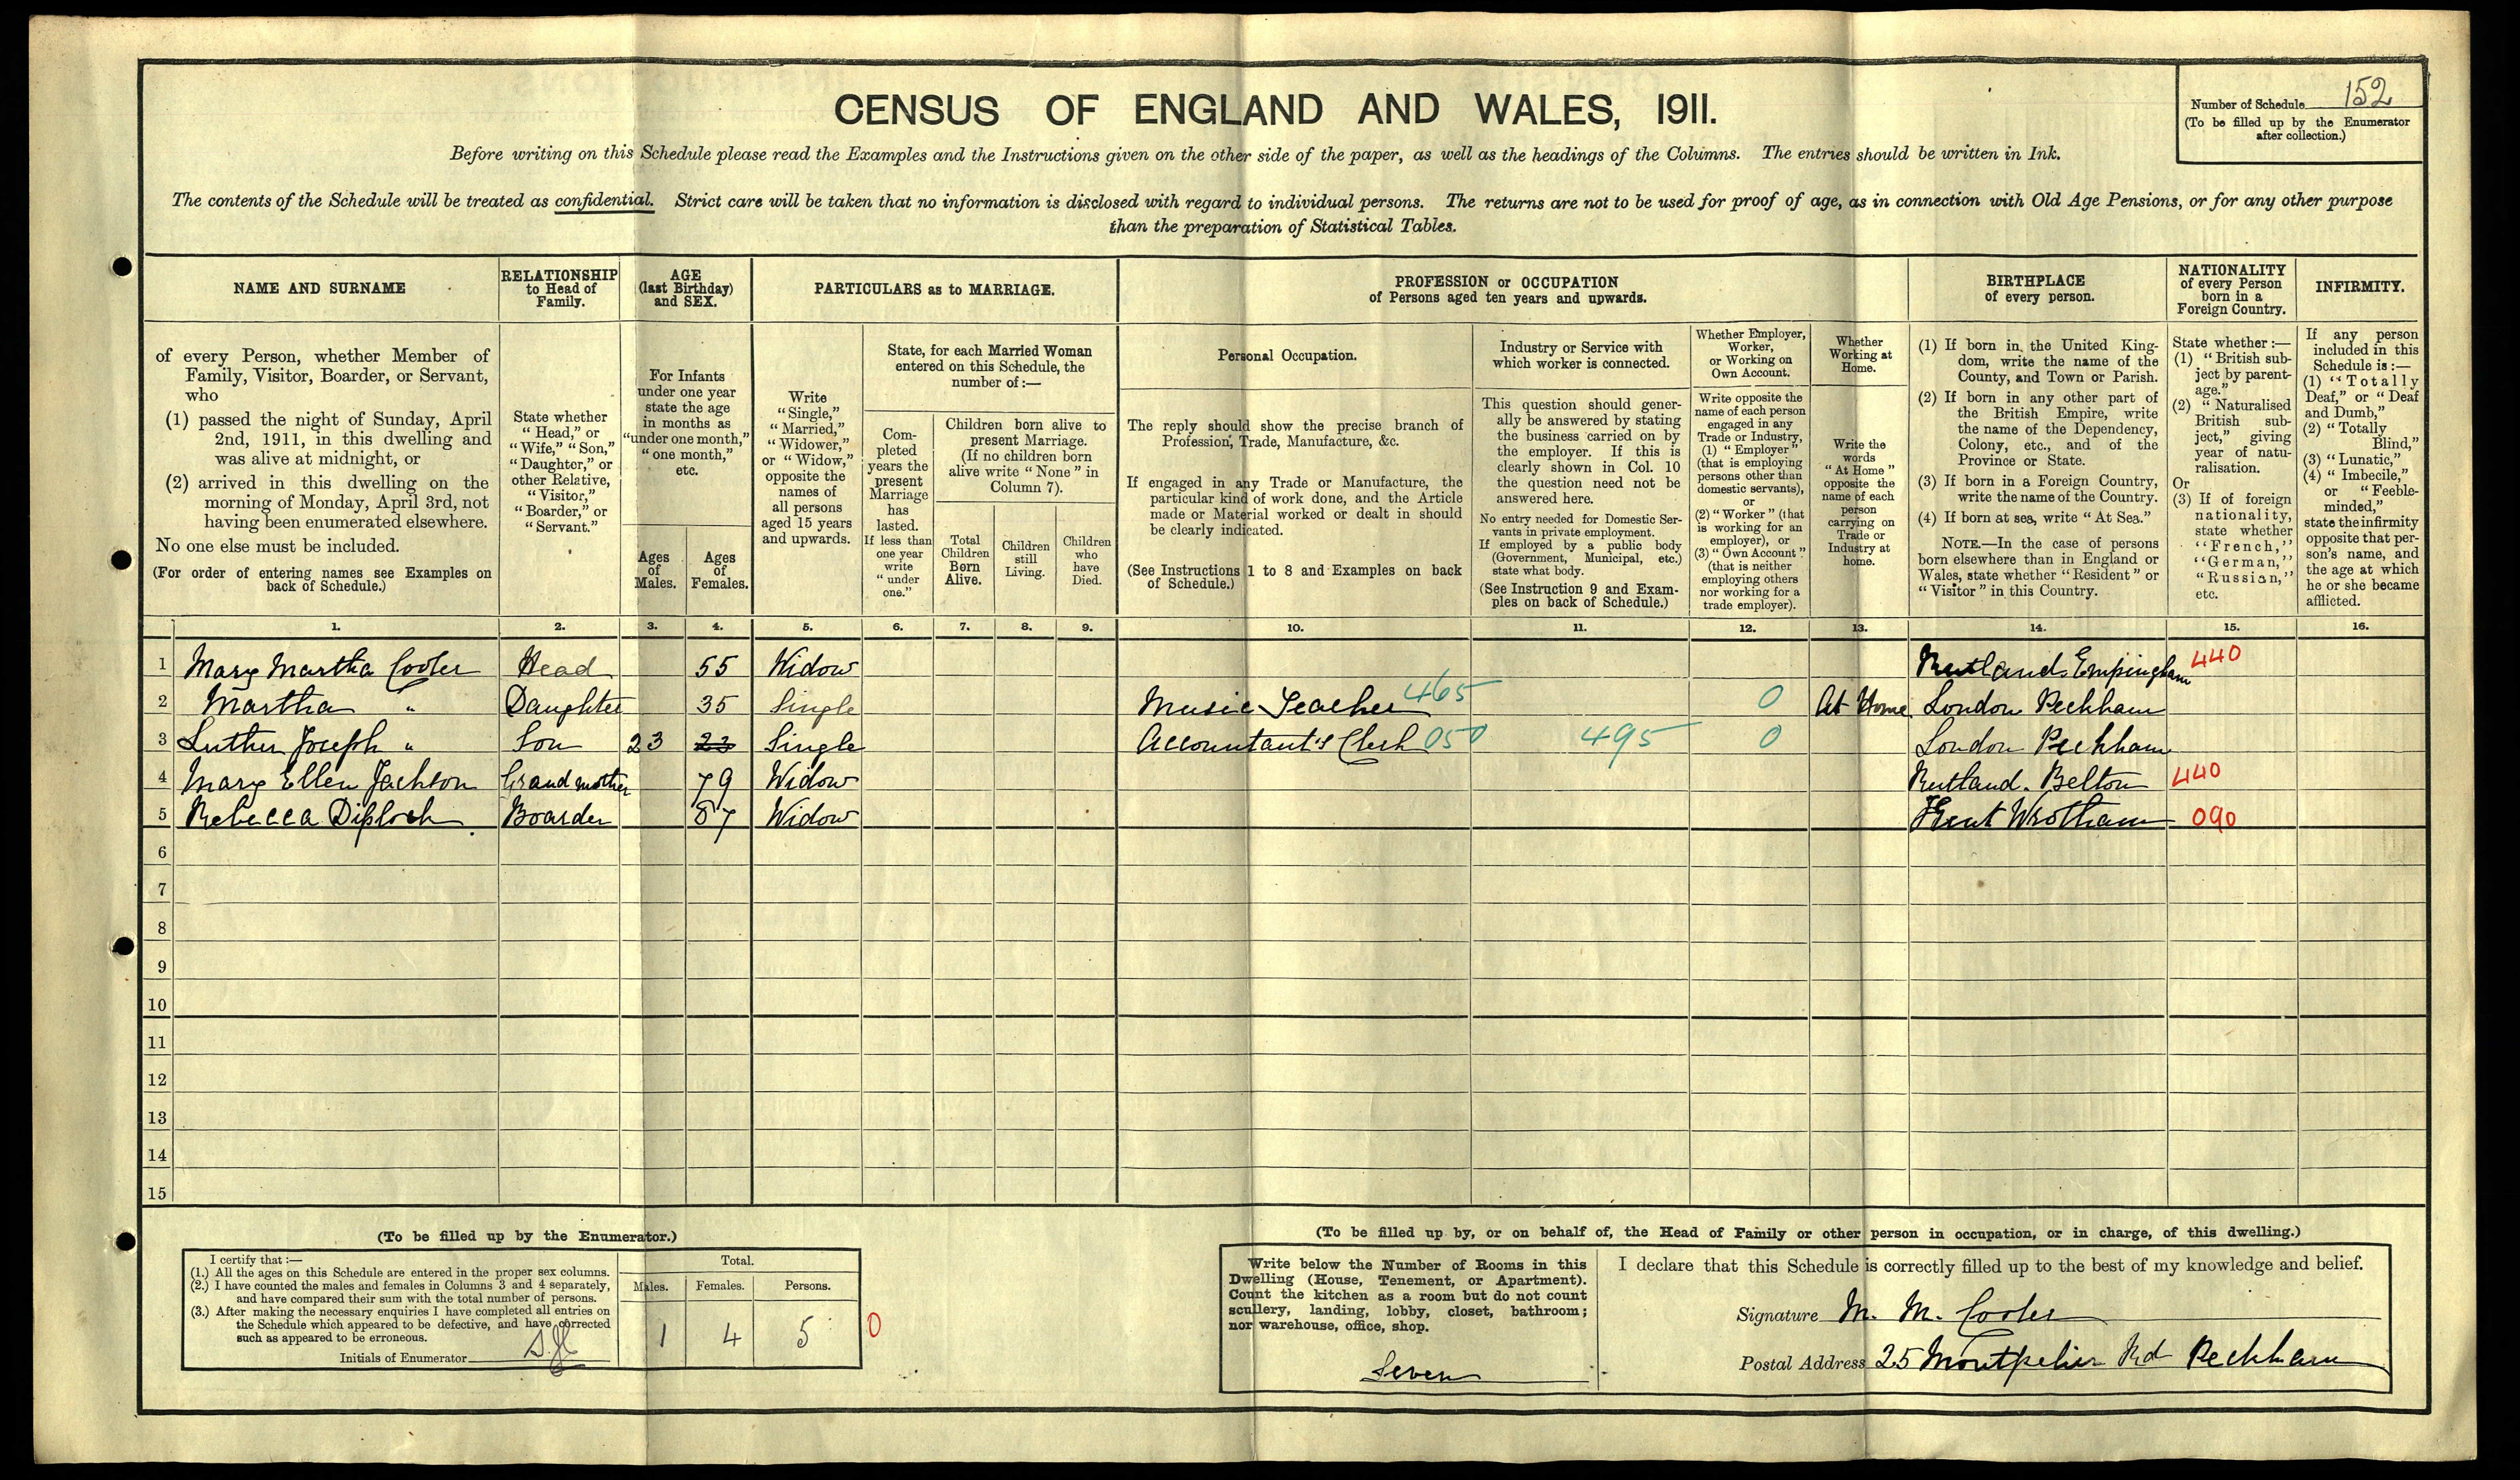 CENSUS OF ENGLAND AND WALES, 1911.
Number of Schedule 152
(To be filled up by the Enumerator
after collection.)
Before writing on this Schedule please read the Examples and the Instructions given on the other side of the paper, as well as the headings of the Columns. The entries should be written in Ink.
The contents of the Schedule will be treated as confidential. Strict care will be taken that no information is disclosed with regard to individual persons. The returns are not to be used for proof of age, as in connection with Old Age Pensions, or for any other purpose
than the preparation of Statistical Tables.
NAME AND SURNAME
of every Person, whether Member of
Family, Visitor, Boarder, or Servant,
who
(1) passed the night of Sunday, April
2nd, 1911, in this dwelling and
was alive at midnight, or
(2) arrived in this dwelling on the
morning of Monday, April 3rd, not
having been enumerated elsewhere.
No one else must be included.
(For order of entering names see Examples on
back of Schedule.)
RELATIONSHIP
to Head of
Family.
State whether
"Head," or
"Wife," "Son,"
"Daughter," or
other Relative,
"Visitor,"
"Boarder," or
"Servant."
AGE
(last Birthday)
and SEX.
For Infants
under one year
state the age
in months as
"under one month,"
"one month,"
etc.
Ages
of
Males.
Ages
of
Females.
PARTICULARS as to MARRIAGE.
Write
"Single,"
"Married,"
"Widower,"
or "Widow,"
opposite the
names of
all persons
aged 15 years
and upwards.
State, for each Married Woman
entered on this Schedule, the
number of:—
Com-
pleted
years the
present
Marriage
has
lasted.
If less than
one year
write
"under
one."
Children born alive to
present Marriage.
(If no children born
alive write "None" in
Column 7).
Total
Children
Born
Alive.
Children
still
Living.
Children
who
have
Died.
PROFESSION or OCCUPATION
of Persons aged ten years and upwards.
Personal Occupation.
The reply should show the precise branch of
Profession, Trade, Manufacture, &c.
If engaged in any Trade or Manufacture, the
particular kind of work done, and the Article
made or Material worked or dealt in should
be clearly indicated.
(See Instructions 1 to 8 and Examples on back
of Schedule.)
Industry or Service with
which worker is connected.
This question should gener-
ally be answered by stating
the business carried on by
the employer. If this is
clearly shown in Col. 10
the question need not be
answered here.
No entry needed for Domestic Ser-
vants in private employment.
If employed by a public body
(Government, Municipal, etc.)
state what body.
(See Instruction 9 and Exam-
ples on back of Schedule.)
Whether Employer,
Worker,
or Working on
Own Account.
Write opposite the
name of each person
engaged in any
Trade or Industry,
(1) "Employer"
(that is employing
persons other than
domestic servants),
or
(2) "Worker" (that
is working for an
employer), or
(3) "Own Account"
(that is neither
employing others
nor working for a
trade employer).
Whether
Working at
Home.
Write the
words
"At Home"
opposite the
name of each
person
carrying on
Trade or
Industry at
home.
BIRTHPLACE
of every person.
(1) If born in the United King-
dom, write the name of the
County, and Town or Parish.
(2) If born in any other part of
the British Empire, write
the name of the Dependency,
Colony, etc., and of the
Province or State.
(3) If born in a Foreign Country,
write the name of the Country.
(4) If born at sea, write "At Sea."
NOTE.—In the case of persons
born elsewhere than in England or
Wales, state whether "Resident" or
"Visitor" in this Country.
NATIONALITY
of every Person
born in a
Foreign Country.
State whether:—
(1) "British sub-
ject by parent-
age."
(2) "Naturalised
British sub-
ject," giving
year of natu-
ralisation.
Or
(3) If of foreign
nationality,
state whether
"French,"
"German,"
"Russian,"
etc.
INFIRMITY.
If any person
included in this
Schedule is:—
(1) "Totally
Deaf," or "Deaf
and Dumb,"
(2) "Totally
Blind,"
(3) "Lunatic,"
(4) "Imbecile,"
or "Feeble-
minded,"
state the infirmity
opposite that per-
son's name, and
the age at which
he or she became
afflicted.
1. 2. 3. 4. 5. 6. 7. 8. 9. 10. 11. 12. 13. 14. 15. 16.
1 Mary Martha Cooler Head 55 Widow Rutland Empingham 440
2 Martha " Daughter 35 Single Music Teacher 465 0 At Home London Peckham
3 Luther Joseph " Son 23 23 Single Accountant's Clerk 050 495 0 London Peckham
4 Mary Ellen Jackson Grandmother 79 Widow Rutland. Belton 440
5 Rebecca Diplock Boarder 87 Widow Kent Wrotham 090
6
7
8
9
10
11
12
13
14
15
(To be filled up by the Enumerator.)
I certify that:—
(1.) All the ages on this Schedule are entered in the proper sex columns.
(2.) I have counted the males and females in Columns 3 and 4 separately,
and have compared their sum with the total number of persons.
(3.) After making the necessary enquiries I have completed all entries on
the Schedule which appeared to be defective, and have corrected
such as appeared to be erroneous.
Initials of Enumerator
Total.
Males. Females. Persons.
1 4 5 0
(To be filled up by, or on behalf of, the Head of Family or other person in occupation, or in charge, of this dwelling.)
Write below the Number of Rooms in this
Dwelling (House, Tenement, or Apartment).
Count the kitchen as a room but do not count
scullery, landing, lobby, closet, bathroom;
nor warehouse, office, shop.
Seven
I declare that this Schedule is correctly filled up to the best of my knowledge and belief.
Signature M. M. Cooler
Postal Address 25 Montpelier Rd Peckham